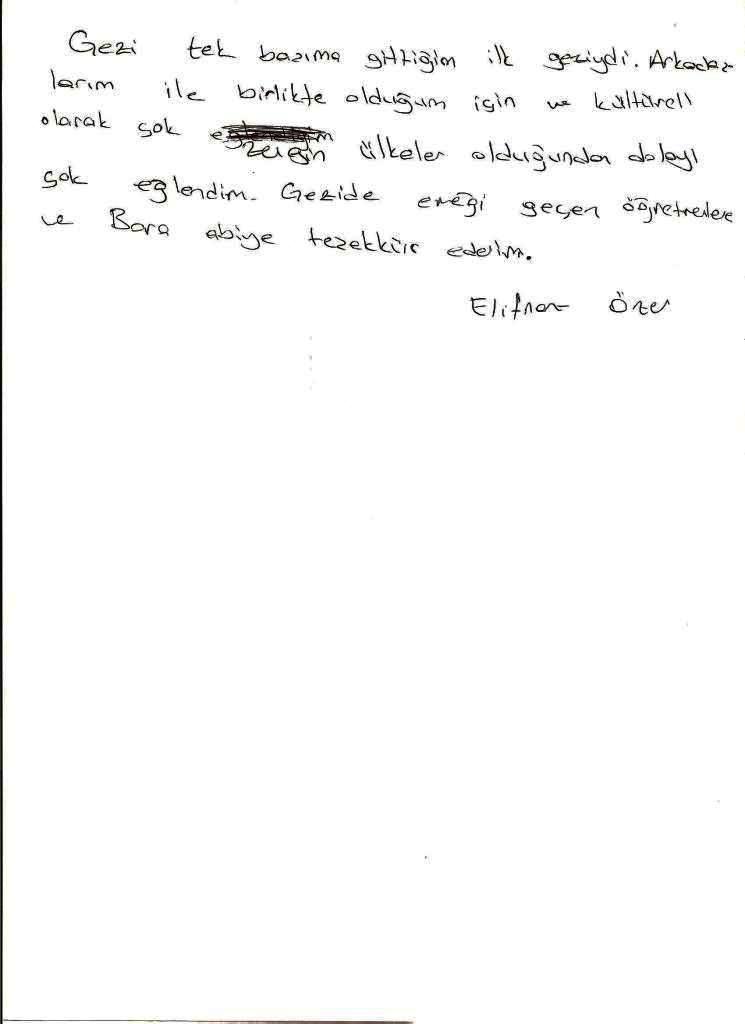 Gezi tek bazıma gittiğim ilk geziydi. Arkadaz
larım ile birlikte olduğum için ve kültürell
olarak şok zengin ülkeler olduğundan dolayı
şok eğlendim. Gezide emeği geçen öğretmenlere
ve Bora abiye tezekkür ederim.
Elifnaz Özer